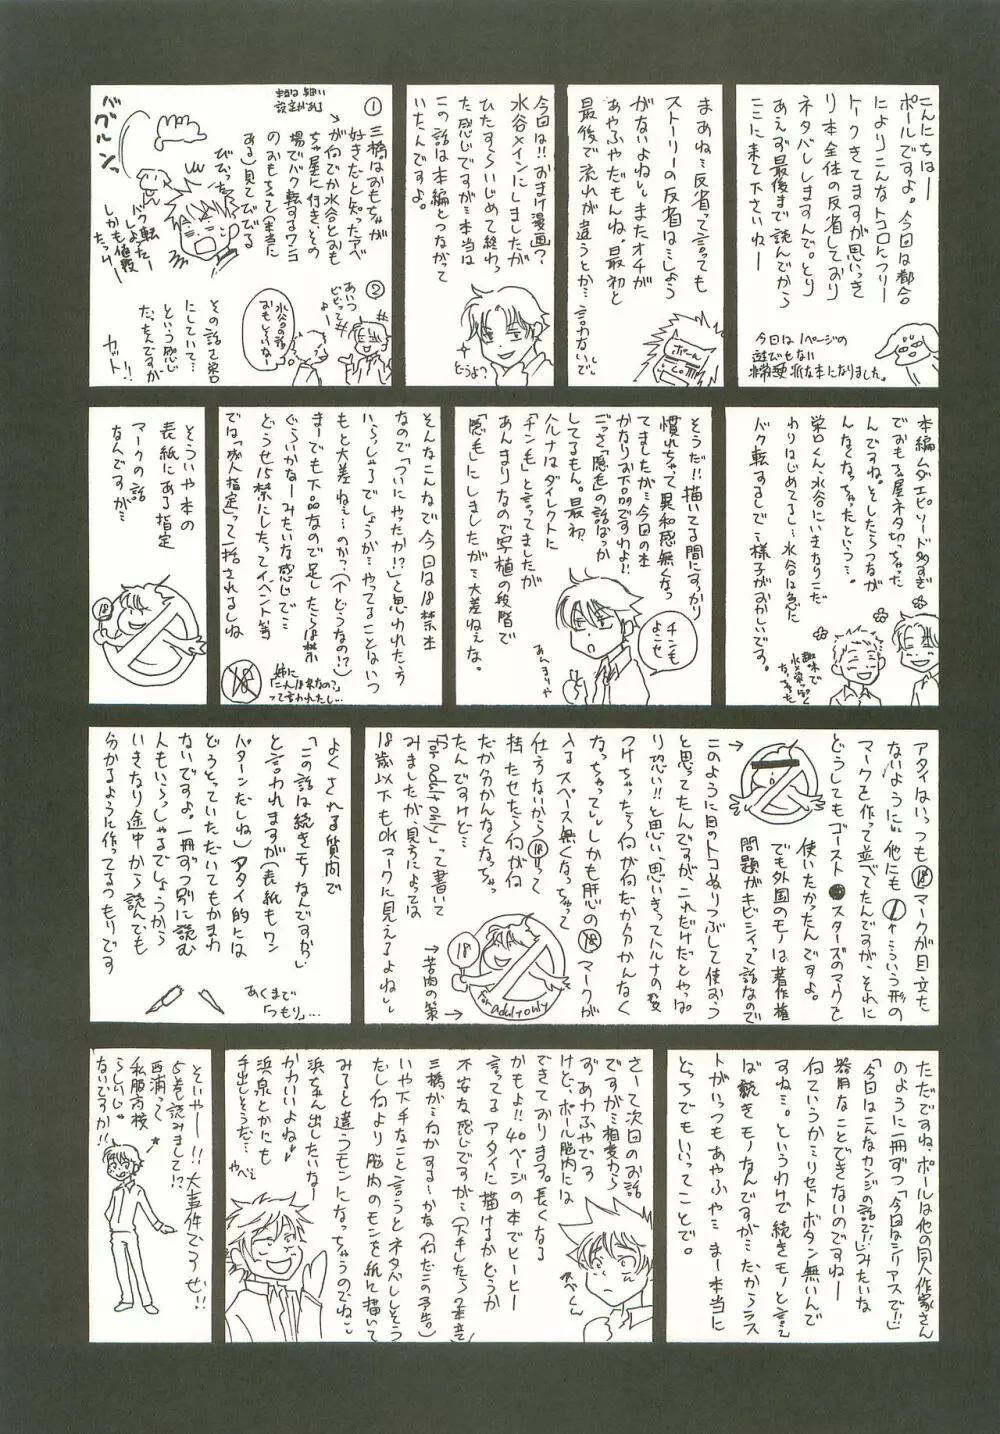 こんにちはー
ポールですよ。今回は都合
によりこんなトコロにフリー
トークきてますが思いっき
り本全体の反省しており
ネタバレしますんで。とり
あえず最後まで読んでから
ここに来て下さいねー
今回は1ページの
遊びもない
硬派な本になりました。
まあね…反省って言っても
ストーリーの反省は…しよう
がないよね。またオチが
あやふやだもんね。最初と
最後で流れが違うとか…言わないで。
ポール
今回は!!おまけ漫画?
水谷メインにしましたが
ひたすらいじめて終わっ
た感じですが…本当は
この話は本編とつながって
いたんですよ。
どうよ?
①
三橋はおもちゃが
好きだと知った阿べ
が何でか水谷とおも
ちゃ屋に行き、その
場でバク転するワンコ
のおもちゃ(本当に
ある)見てびびる
びびったー
バク転したー
しかも値段
たっけー
バグルン
②
あいつ
ビビってるよー
水谷の話
おもしろいなー
その話を栄口
にしていて…
という感じ
だったんですが
カット!!
本編ムダエピソード多すぎ
でおもちゃ屋ネタ切っちゃった
んですね。そしたらつながん
なくなっちゃったというっ…。
栄口くん、水谷にいきなりこだ
わりはじめてるし…水谷は急に
バク転するしで…様子がおかしいです。
そうだ!!描いてる間にすっかり
慣れちゃって異和感無くなっ
てましたが…今回の本
かなりお下品ですわよ!!
ごっさ「隠毛」の話ばっか
してるもん。最初、
ハルナはダイレクトに
「チン毛」と言ってましたが
あんまりなので写植の段階で
「隠毛」にしましたが…大差ねぇな。
チンも
よこせ
あんまりや
そんなこんなで今回は18禁本
なので「ついにやったか!?」と思われた方
いらっしゃるでしょうが…やってることはいつ
もと大差ねぇ…のか…(↑どうなの!?)
まーでも下品なので足したら18禁
ぐらいかなーみたいな感じで…
どうせ15禁にしたってイベント等
では「成人指定」って一括されるしね
姉に
「こんな18禁なの?」
って言われたし…
そういや本の
表紙にある指定
マークの話
なんですが…
18
アタイはいっつも⑱マークが目立た
ないように"他にも こういう形の
マークを作って並べてたんですが、それに
どうしてもゴースト●スターズのマークを
使いたかったんですよ。
でも外国のモノは著作権
問題がキビシイって話なので
このように目のトコぬりつぶして使おう
と思ってたんですが、これだけだとやっぱ
り恐い!!と思い、思いきってハルナの髪
つけちゃったら何が何だか分かんなく
なっちゃって。しかも肝心の⑱マークが
入るスペース無くなっちゃって
仕方ないから⑱って
持たせたら何が何
だか分かんなくなっちゃっ
たんですけど…
「for adult only」って書いて
みましたが、見方によっては
18歳以下もOKマークに見えるよね。
for adult only
→苦肉の策→
よくされる質問で
「この話は続きモノなんですか」
と言われますが(表紙もワン
パターンだしね)アタイ的には
どうとっていただいてもかまわ
ないですよ。一冊ずつ別に読む
人もいらっしゃるでしょうから
いきなり途中から読んでも
分かるように作ってるつもりです
あくまで
「つもり」…
ただですね、ポールは他の同人作家さん
のように一冊ずつ「今回はシリアスで!!」
「今回はこんなカンジの話で!!」みたいな
器用なことできないのですねー
何ていうか…リセットボタン無いんで
すね…。というわけで続きモノと言え
ば続きモノなんですが…だからラス
トがいつもあやふや…まー本当に
どっちでもいいってことで。
さーて次回のお話
ですが…相変わら
ずあやふやです
けど、ポール脳内には
できております。長くなる
かもよ!!40ページの本でヒーヒー
言ってるアタイに描けるかどうか
不安な感じですが…(下手したら2本立)
三橋が…何かする…かな(何だこの予告。)
いや下手なこと言うとネタバレしそう
だし何より脳内のモンを紙に描いて
みると違うモンになっちゃうのでね。
浜ちゃん出したいなー
かわいいよね
浜泉とかにも
手出しそうだ…
やべえ
そいやー!!大事件でっせ!!
5巻読みました!?
西浦って
私服高校
らしいじゃ
ないですか!!